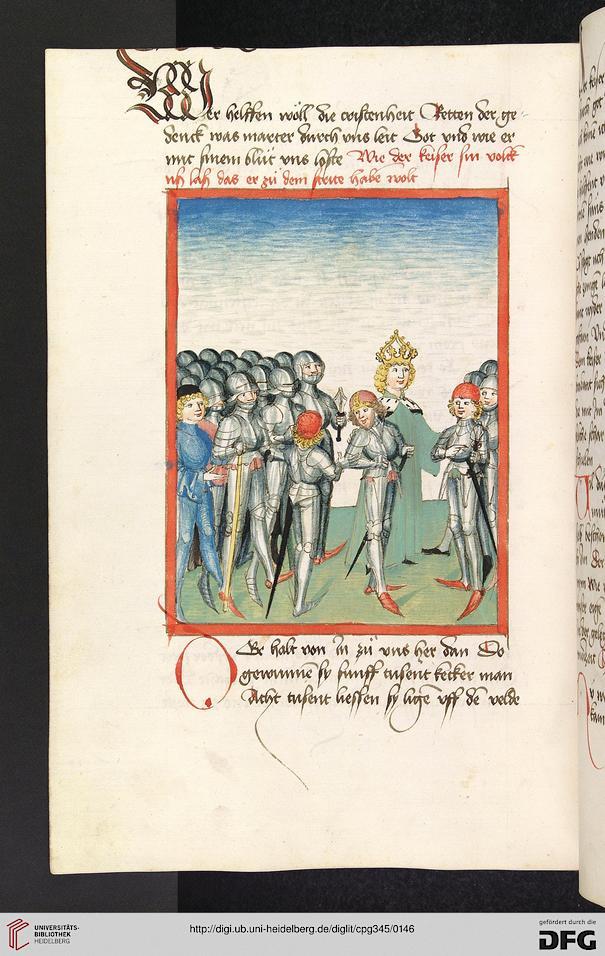 Wer helffen wöll die cristenheit Retten der ge-
denck was marter durch vns leit Got vnd wie er
mit sinem blůt vns löste Wie der keiser sin volck
vß laß das er zů dem strite habe wolt
Der halt von In zů vns her dan Do
gewunnē sy funff tusent kecker man
Acht tusent liessen sy ligē vff dē velde
UNIVERSITÄTS-
BIBLIOTHEK
HEIDELBERG
http://digi.ub.uni-heidelberg.de/diglit/cpg345/0146
gefördert durch die
DFG